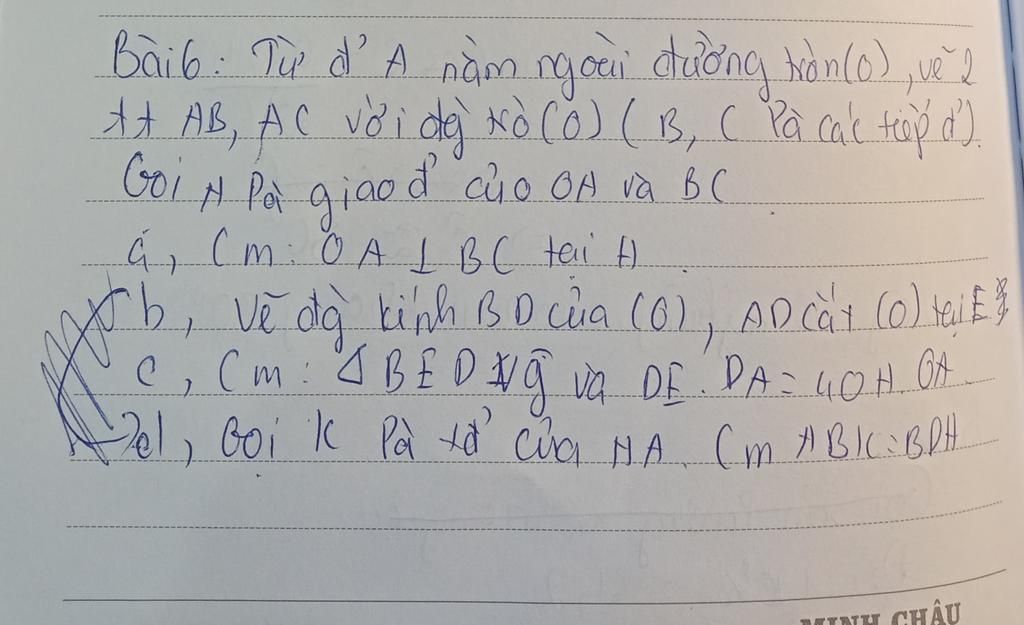 Bài 6: Từ đ' A nằm ngoài đường tròn (O), vẽ 2
tt AB, AC với đg trò (O) ( B, C là các tiếp đ').
Gọi H là giao đ' của OA và BC
a, Cm: OA ⊥ BC tại H.
b, Vẽ đg kính BD của (O), AD cắt (O) tại E
c, Cm: Δ BED vg và DE. DA = 4OH. OA
d, Gọi K là tđ' của HA. Cm ABK = BDH
MINH CHÂU